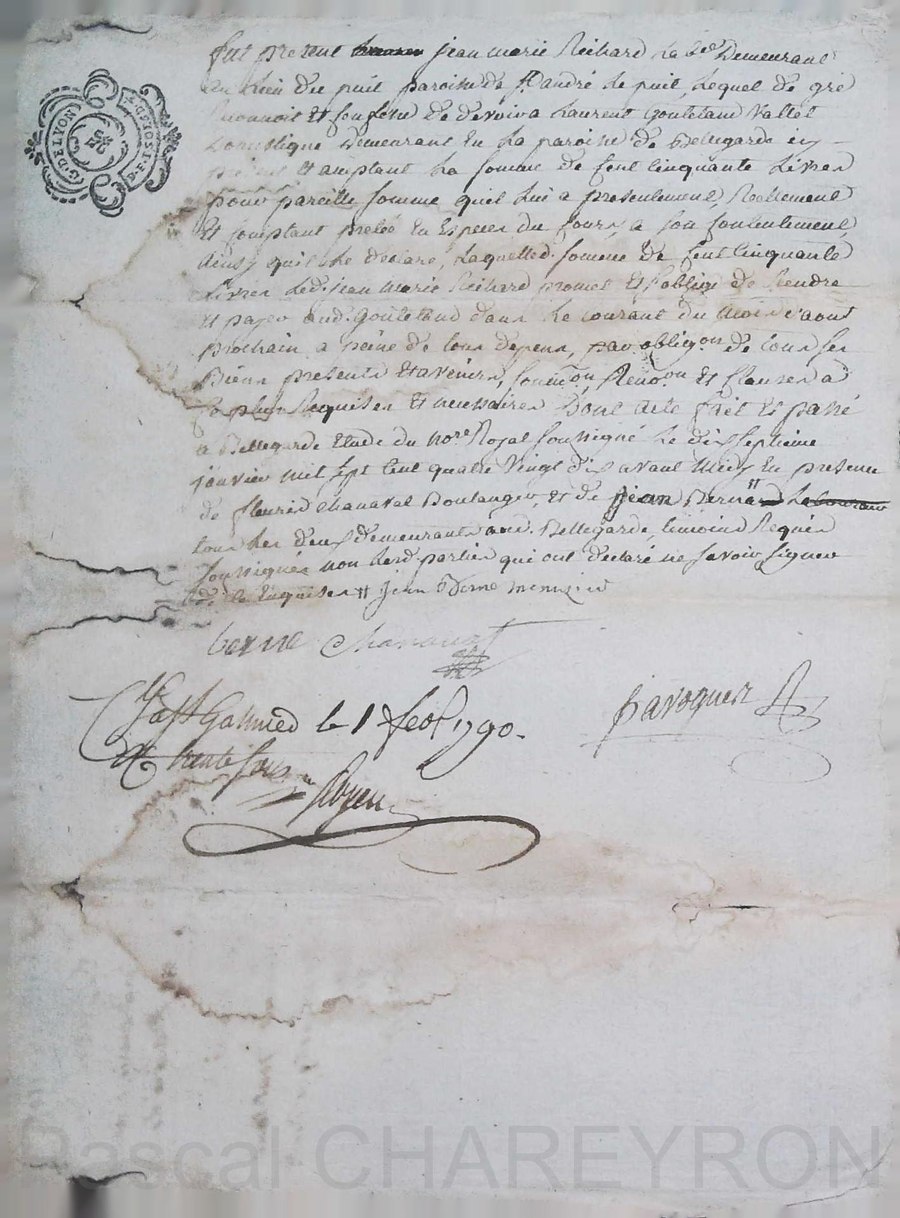 G. DE LYON
2S
D. 1. SOL. 8 D.
fut present jean marie Richard La[...] Demeurant
au Lieu du puit paroisse de St andré le puit, Lequel de gré
reconnoit Et confesse De devoir a Laurent Gouteland Vallet
Domestique Demeurant En La paroisse de Bellegarde icy
présent Et acceptant La somme de Cent Cinquante Livres
pour pareille somme quil Lui a presentement, Reellement
Et comptant pretée En Especes du Cours, a son Contentement
Ainsy quil Le declare, Laquelle d. somme de Cent Cinquante
Livres Led. jean Marie Richard promet Et soblige de Rendre
Et payer aud. Gouteland dans Le courant du mois d'aout
prochain a peine de tous depens, par oblig.on de tous ses
Biens presents Et avenirs, Soum.on, Renon.on Et Clauses a
Ce plus Requises et necessaires Dont acte fait Et passé
a Bellegarde Etude du no.re Royal soussigné Le dix septieme
janvier mil sept Cent quatre Vingt dix avant Midy En presence
de fleurie Chanavat Boulanger, et de jean Berne
tous Les deux demeurants aud. Bellegarde, temoins Requis
soussignés non Lesd. parties qui ont declaré ne savoir signer
de ce Enquises # jean Berne menuizié
berne Chanavat
St Galmied le 1 feb. 1790.
Rt trente sous
paroquer
Pascal CHAREYRON